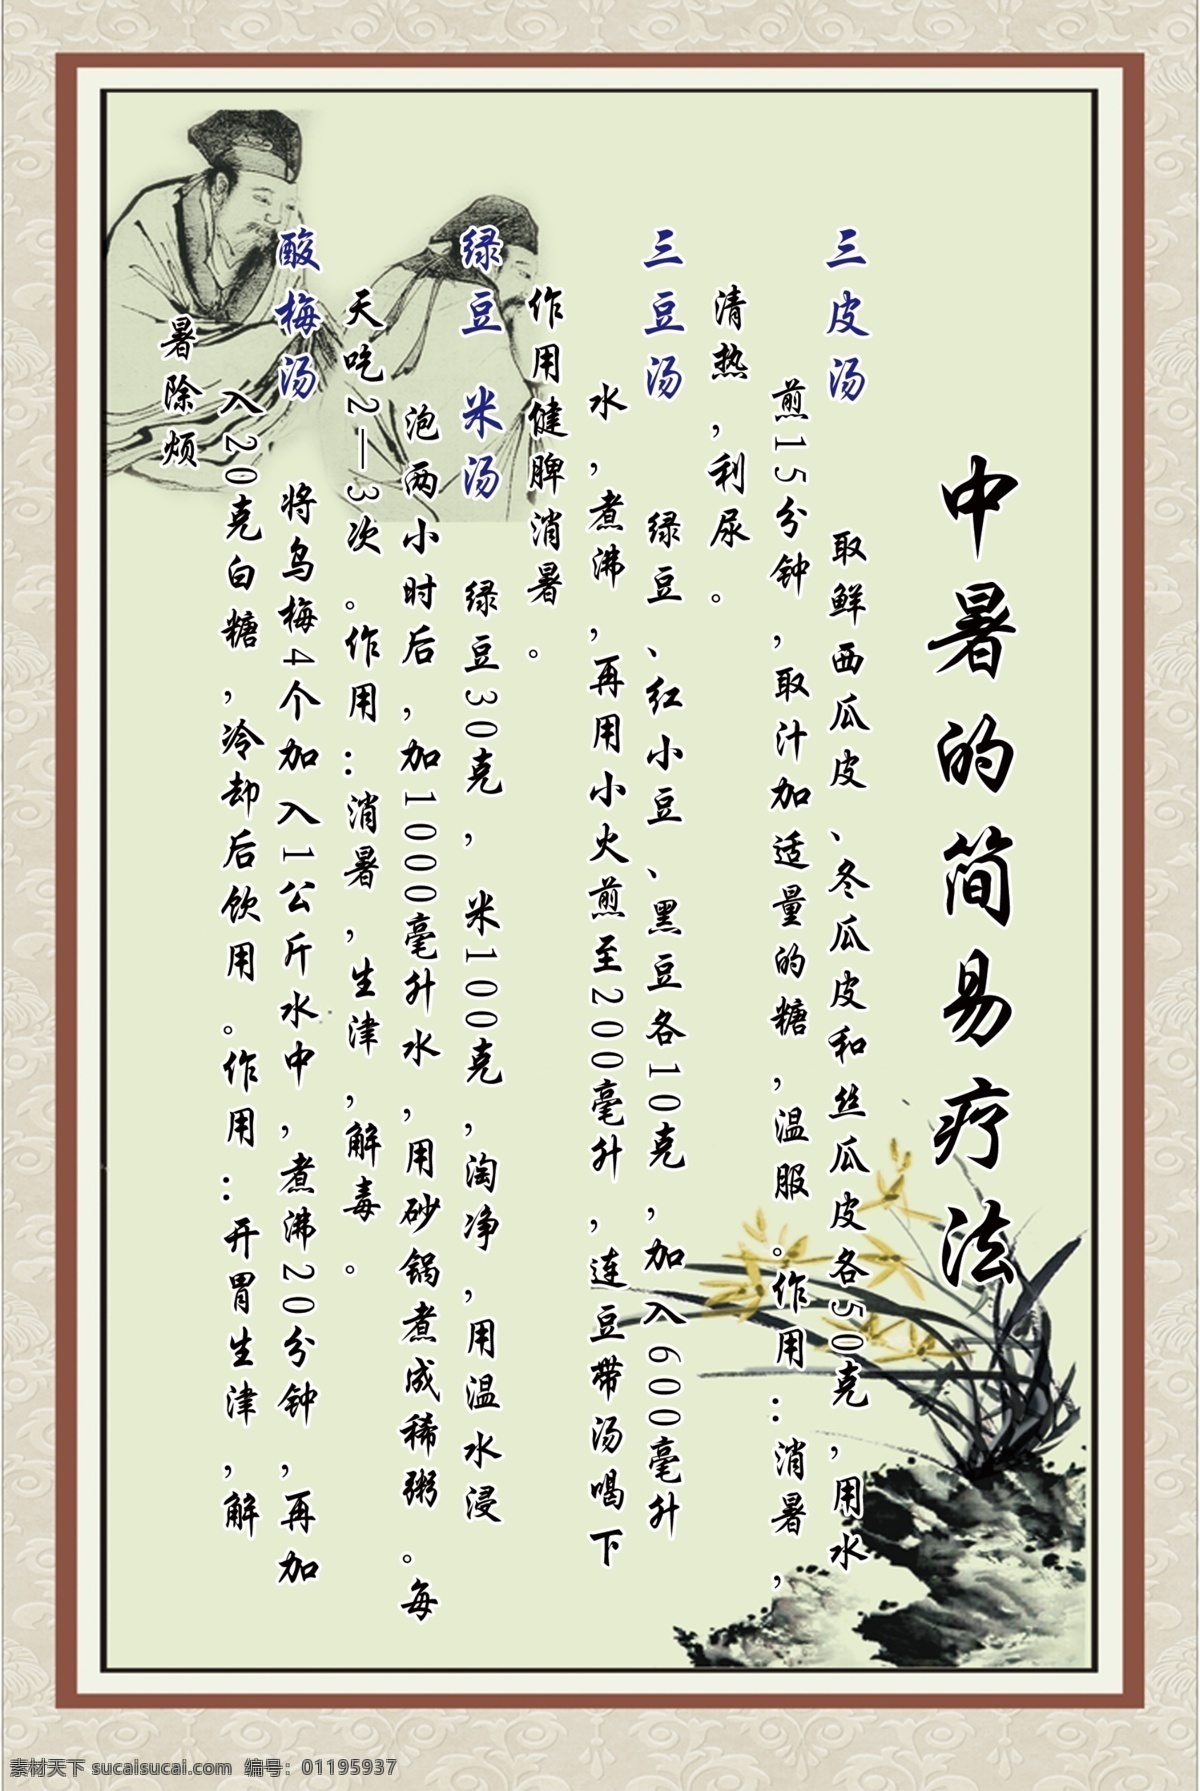 中暑的简易疗法
三皮汤 取鲜西瓜皮、冬瓜皮和丝瓜皮各50克,用水
煎15分钟,取汁加适量的糖,温服。作用:消暑,
清热,利尿。
三豆汤 绿豆、红小豆、黑豆各10克,加入600毫升
水,煮沸,再用小火煎至200毫升,连豆带汤喝下
作用健脾消暑。
绿豆 米汤 绿豆30克, 米100克,淘净,用温水浸
泡两小时后,加1000毫升水,用砂锅煮成稀粥。每
天吃2—3次。作用:消暑,生津,解毒。
酸梅汤 将乌梅4个加入1公斤水中,煮沸20分钟,再加
入20克白糖,冷却后饮用。作用:开胃生津,解
暑除烦
素材天下 sucaisucai.com 编号:01195937